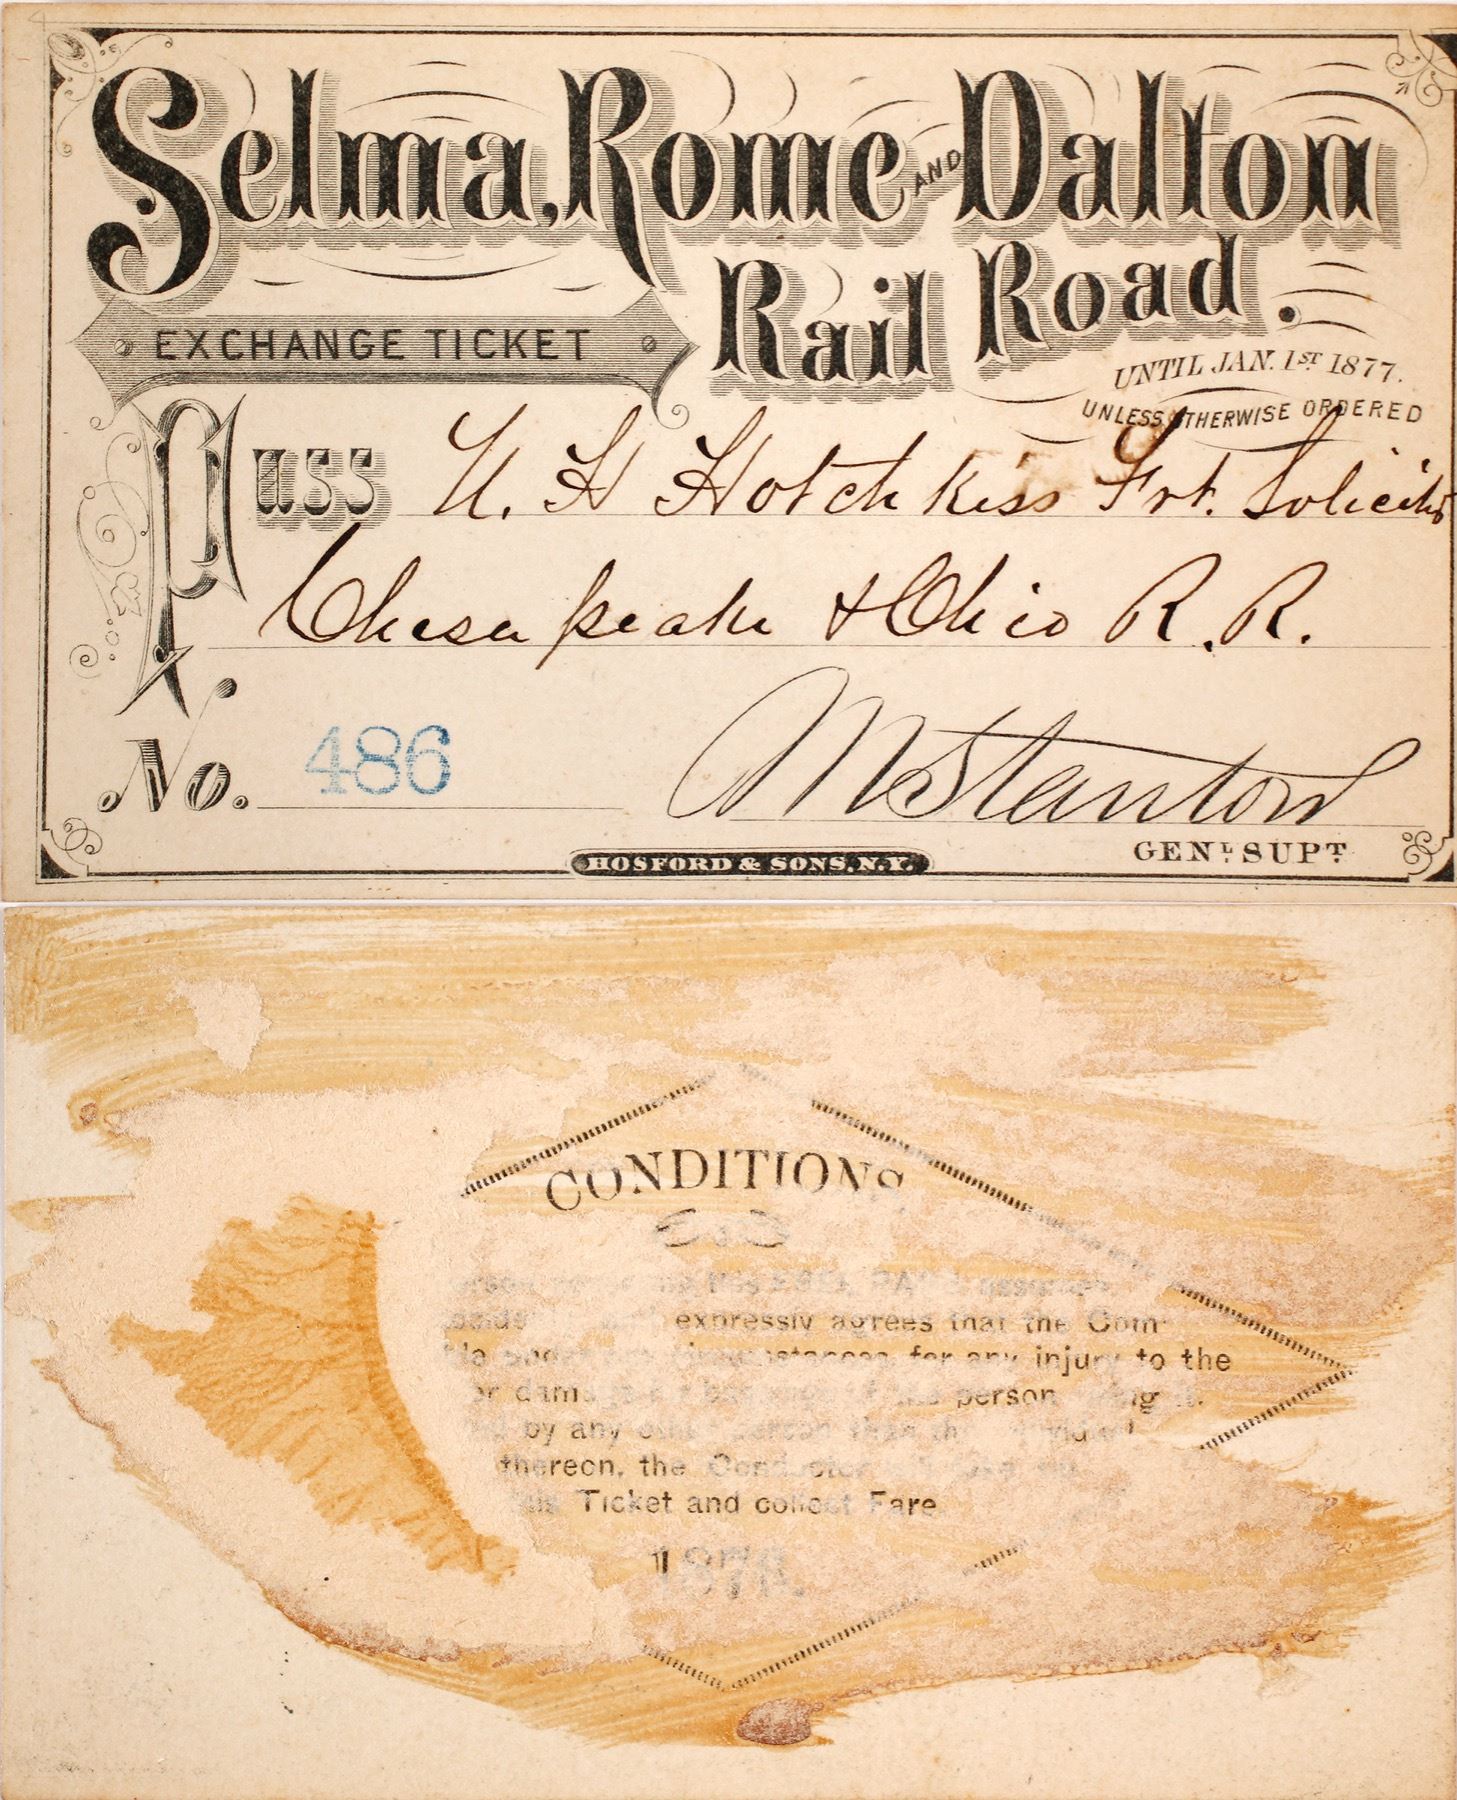 Selma, Rome AND Dalton
Rail Road.
EXCHANGE TICKET
UNTIL JAN. 1ST 1877.
UNLESS OTHERWISE ORDERED
Pass U. H Hotchkiss Frt. Solicitor
Chesapeake & Ohio R.R.
No. 486
M Stanton
GENL SUPT.
HOSFORD & SONS, N.Y.
CONDITIONS
expressly agrees that the Com
for any injury to the
or person
by any person than
thereon, the Conductor
this Ticket and collect Fare.
1876.